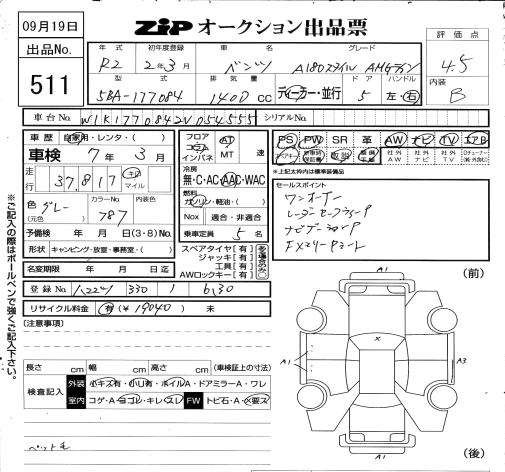 09月19日
ZiP オークション出品票
出品No.
511
年式 初年度登録 車名 グレード
R2 2年3月 ベンツ A180スタイル AMGライン
型式 排気量 ドア ハンドル
5BA-177084 1400 cc ディーラー・並行 5 左・右
評価点
4.5
内装
B
車台No. W1K1770842V054555 シリアルNo.
車歴 自家用・レンタ・( )
車検 7年 3月
走行 37,817 キロ マイル
色 グレー
(元色)
カラーNo.
787
予備検 年 月 日(3・8)No.
形状 キャンピング・放室・事務室・( )
名変期限 年 月 日迄
登録No. 330 6130
リサイクル料金 有(¥ 19040) 未
フロア コラム インパネ AT MT 速
冷房
無・C・AC・AAC・WAC
燃料
ガソリン・軽油・( )
Nox 適合・非適合
乗車定員 5 名
スペアタイヤ[有]
ジャッキ[有]
工具[有]
AWロックキー[有]
ある場合のみ〇
PS PW SR 革 AW ナビ TV エアB
エアギャ 新車時保証書 取説 整備手帳 社外AW 社外ナビ 社外TV
*上記太枠内は標準装備品
セールスポイント
ワンオーナー
レーダーセーフティーP
ナビゲーションP
(注意事項)
長さ cm 幅 cm 高さ cm (車検証上の寸法)
検査記入 外装 小キズ有・小U有・ボイルA・ドアミラーA・ワレ
室内 コゲ・A・ヨゴレ・キレ・スレ FW トビ石・A・X要ス
ペット毛
※ご記入の際はボールペンで強くご記入下さい。
(前)
A1
×
A1
A3
A1
(後)